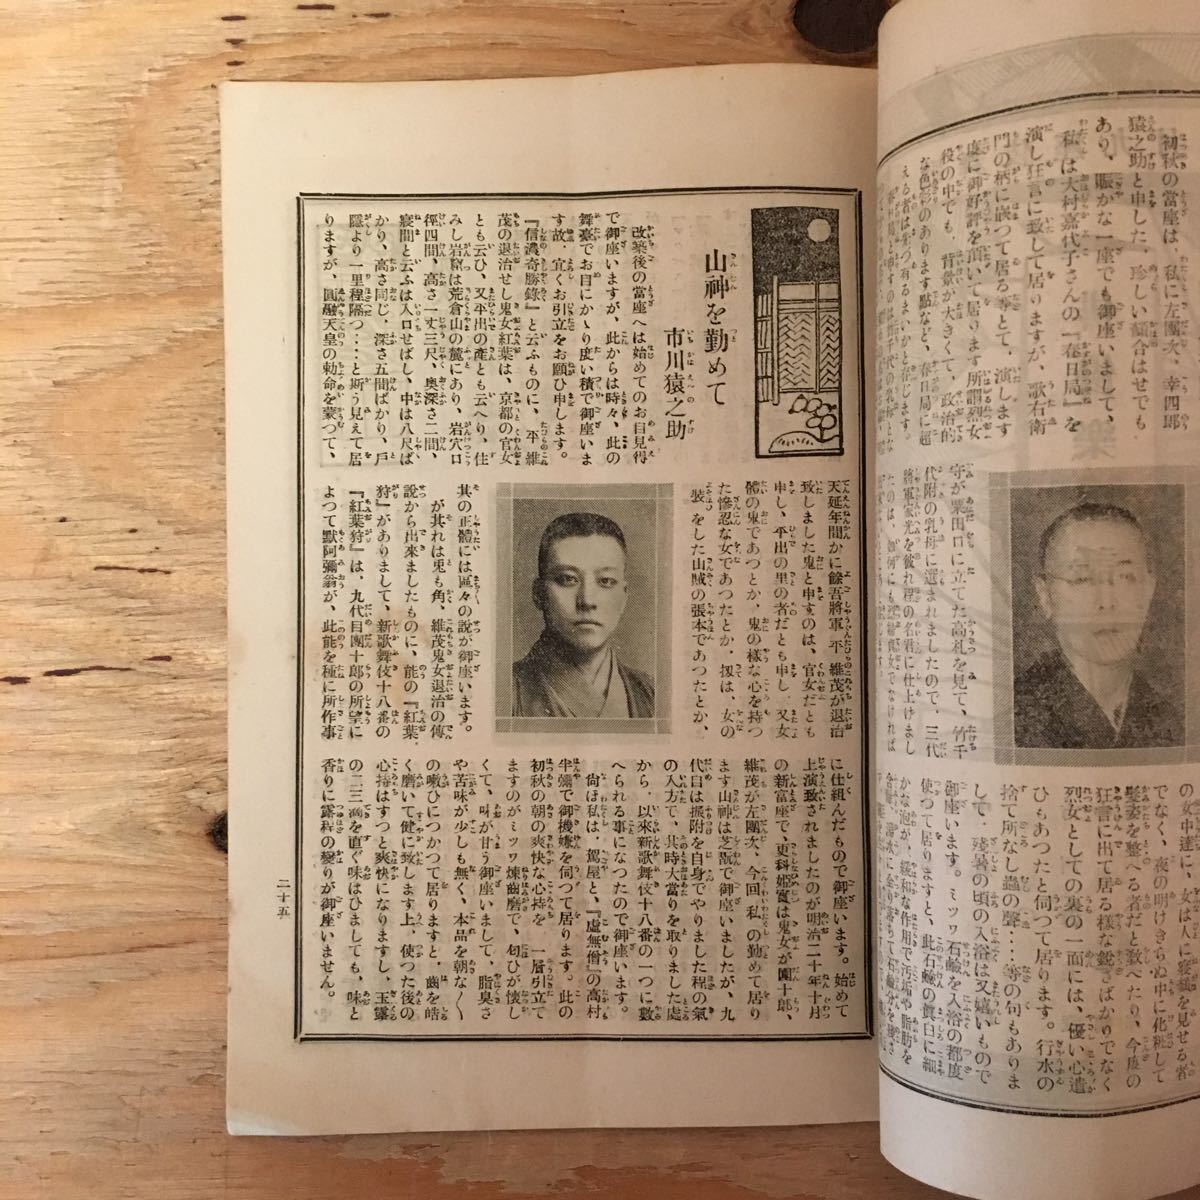 初秋の當座は、私に左團次、幸四郎
猿之助と申した、珍しい顏合はせでも
あり、賑かな一座でも御座いまして、
私は大村嘉代子さんの『春日局』を
演し狂言に致して居りますが、歌右衛
門の柄に嵌つて居る等とて、演します
度に御好評を頂いて居ります所謂烈女
役の中でも、背景が大きくて、政治的
な色彩のあります點など、春日局に超
える者は先づ有るまいかと存じます。
守が粟田口に立てた高札を見て、竹千
代附の乳母に選まれましたので、三代
將軍家光を彼れ程の名君に仕上げまし
たのは、如何にも
の女中達に、女は人に寢顏を見せる者
でなく、夜の明けきらぬ中に化粧して
髮姿を整へる者だと敎へたり、今度の
狂言に出て居る樣な銳さばかりでなく
烈女としての裏の一面には、優い心遣
ひもあつたと伺つて居ります。行水の
捨て所なし蟲の聲‥‥等の句もありま
して、殘暑の頃の入浴は又嬉いもので
御座います。ミツワ石鹼を入浴の都度
使つて居りますと、此石鹼の眞白に細
かな泡が、緩和な作用で汚垢や脂肪を
山神を勤めて
市川猿之助
改築後の當座へは始めてのお目見得
で御座いますが、此からは時々、此の
舞臺でお目にかゝり度い積で御座いま
す故、宜くお引立をお願ひ申します。
『信濃奇勝錄』と云ふものに、平維
茂の退治せし鬼女紅葉は、京都の官女
とも云ひ、又平出の產とも云へり、住
みし岩窟は荒倉山の麓にあり、岩穴口
徑四間、高さ一丈三尺、奧深さ二間、
寢間と云ふは入口せばし、中は八尺ば
かり、高さ同じ、深さ五間ばかり、戶
隱より一里程隔つ‥‥と斯う見えて居
りますが、圓融天皇の勅命を蒙つて、
天延年間かに餘吾將軍平維茂が退治
致しました鬼と申すのは、官女だとも
申し、平出の里の者だとも申し、又女
體の鬼であつとか、鬼の樣な心を持つ
た慘忍な女であつたとか、扨は、女の
裝をした山賊の張本であつたとか、
其の正體には區々の說が御座います。
が其れは兎も角、維茂鬼女退治の傳
說から出來ましたものに、能の『紅葉
狩』がありまして、新歌舞伎十八番の
『紅葉狩』は、九代目團十郎の所望に
よつて默阿彌翁が、此能を種に所作事
に仕組んだもので御座います。始めて
上演致されましたのが明治二十年十月
の新富座で、更科姬實は鬼女が團十郎、
維茂が左團次、今回私の勤めて居り
ます山神は芝翫で御座いましたが、九
代目は振附を自身でやりました程の氣
の入方で、其時大當りを取りました處
から、以來新歌舞伎十八番の一つに數
へられる事になつたので御座います。
尙ほ私は、駕屋と、『虛無僧』の高村
半彌で御機嫌を伺つて居ります。此の
初秋の朝の爽快な心持を　一層引立て
ますのがミツワ煉齒磨で、匂ひが懷し
くて、味が甘う御座いまして、脂臭さ
や苦味が少しも無く、本品を朝な〱
の嗽ひにつかつて居りますと、齒を皓
く磨いて健に致します上、使つた後の
心持はすつと爽快になりますし、玉露
の二三滴を直ぐ味はひましても、味と
香りに露程の變りが御座いません。
二十五